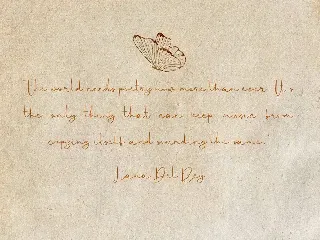 "The world needs poetry now more than ever. It's
the only thing that can keep man from
copying itself and mending the same."
Lana Del Rey